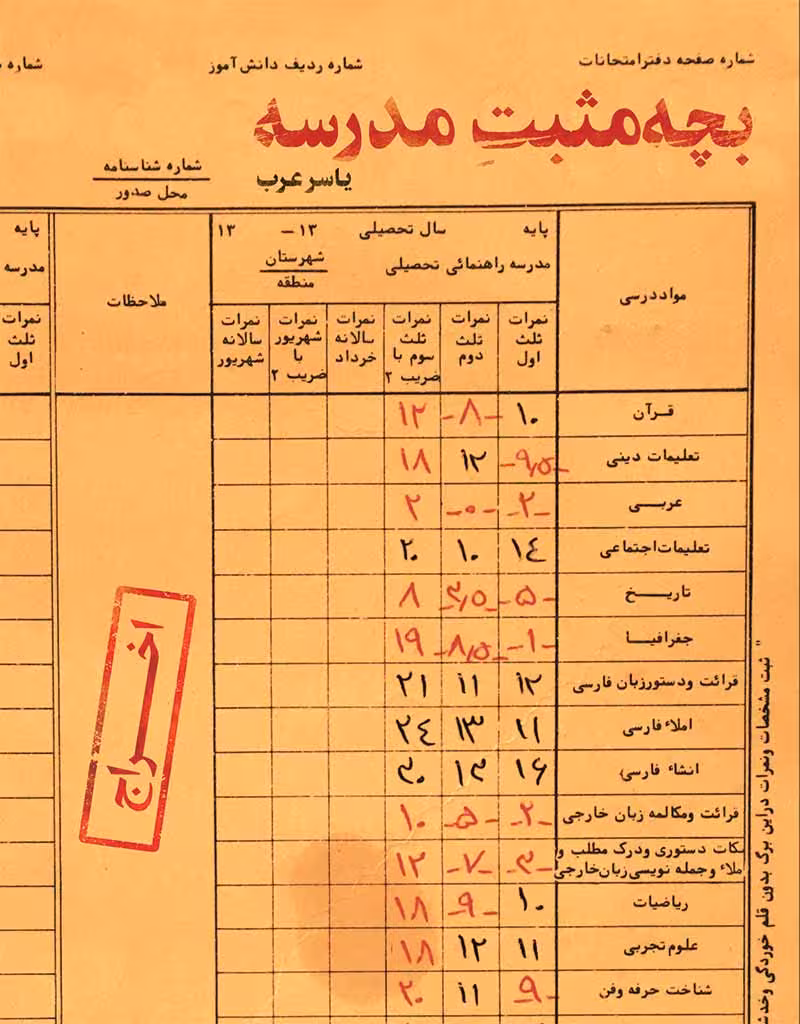 شماره صفحه دفترامتحانات
شماره ردیف دانش‌آموز
شماره
بچه مثبتِ مدرسه
یاسر عرب
شماره شناسنامه
محل صدور
پایه سال تحصیلی ۱۳ – ۱۳
مدرسه راهنمائی تحصیلی شهرستان
منطقه
مواد درسی
ملاحظات
پایه
مدرسه
نمرات ثلث اول
نمرات ثلث دوم
نمرات ثلث سوم با ضریب ۲
نمرات سالانه خرداد
نمرات شهریور با ضریب ۲
نمرات سالانه شهریور
نمرات ثلث اول
قرآن ۱۰ -۸- ۱۲
تعلیمات دینی -۹٫۵- ۱۲ ۱۸
عربی -۲- -۰- ۲
تعلیمات اجتماعی ۱٤ ۱۰ ۲۰
تاریخ -۵- -۳٫۵- ۸
جغرافیا -۱- -۸٫۵- ۱۹
قرائت ودستورزبان فارسی ۱۲ ۱۱ ۲۱
املاء فارسی ۱۱ ۱۳ ۲٤
انشاء فارسی ۱۶ ۱۳ ۳۰
قرائت ومکالمه زبان خارجی -۲- -۵- ۱۰
نکات دستوری ودرک مطلب و
املاء وجمله نویسی زبان خارجی -۳- -۷- ۱۲
ریاضیات ۱۰ -۹- ۱۸
علوم تجربی ۱۱ ۱۲ ۱۸
شناخت حرفه وفن -۹- ۱۱ ۲۰
اخراج
" ثبت مشخصات ونمرات دراین برگ بدون قلم خوردگی